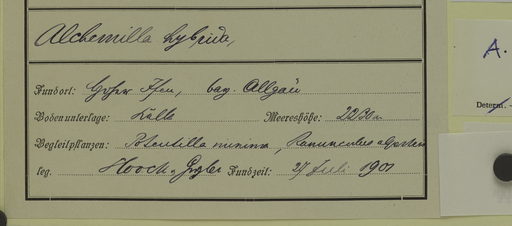 Alchemilla hybrida,
Fundort: Hoher Ifen, bay. Allgäu
Bodenunterlage: Kalk Meereshöhe: 2230 m
Begleitpflanzen: Potentilla minima, Ranunculus alpestris
leg. Fundzeit: 27 Juli 1901
A.
Determ.